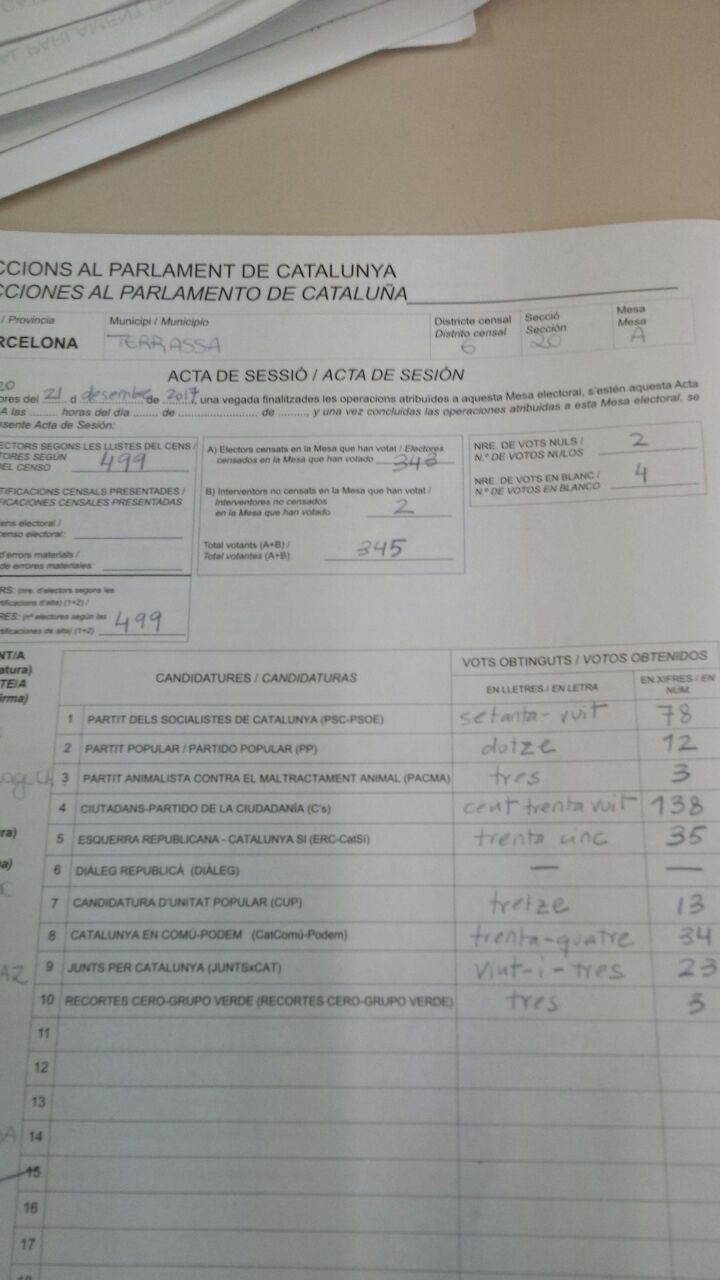 CCIONS AL PARLAMENT DE CATALUNYA
CCIONES AL PARLAMENTO DE CATALUÑA
/ Provincia
RCELONA
Municipi / Municipio
TERRASSA
Districte censal
Distrito censal
6
Secció
Sección
20
Mesa
Mesa
A
ACTA DE SESSIÓ / ACTA DE SESIÓN
20
ores del 21 d desembre de 2017, una vegada finalitzades les operacions atribuïdes a aquesta Mesa electoral, s'estén aquesta Acta
A las ......... horas del día ...... de ........................... de ........, y una vez concluidas las operaciones atribuidas a esta Mesa electoral, se
sente Acta de Sesión:
ECTORS SEGONS LES LLISTES DEL CENS /
TORES SEGÚN
EL CENSO 499
TIFICACIONS CENSALS PRESENTADES /
FICACIONES CENSALES PRESENTADAS
ens electoral /
enso electoral:
d'errors materials /
de errores materiales:
RS: (nre. d'electors segons les
rtificacions d'alta) (1+2) /
RES: (nº electores según las
tificaciones de alta) (1+2) 499
A) Electors censats en la Mesa que han votat / Electores
censados en la Mesa que han votado 343
B) Interventors no censats en la Mesa que han votat /
Interventores no censados
en la Mesa que han votado 2
Total votants (A+B) /
Total votantes (A+B) 345
NRE. DE VOTS NULS /
N.º DE VOTOS NULOS 2
NRE. DE VOTS EN BLANC /
N.º DE VOTOS EN BLANCO 4
NT/A
atura)
TE/A
irma)
CANDIDATURES / CANDIDATURAS
VOTS OBTINGUTS / VOTOS OBTENIDOS
EN LLETRES / EN LETRA
EN XIFRES / EN
NÚM.
1 PARTIT DELS SOCIALISTES DE CATALUNYA (PSC-PSOE) setanta-vuit 78
2 PARTIT POPULAR / PARTIDO POPULAR (PP) dotze 12
3 PARTIT ANIMALISTA CONTRA EL MALTRACTAMENT ANIMAL (PACMA) tres 3
4 CIUTADANS-PARTIDO DE LA CIUDADANÍA (C's) cent trenta vuit 138
5 ESQUERRA REPUBLICANA - CATALUNYA SÍ (ERC-CatSí) trenta cinc 35
6 DIÀLEG REPUBLICÀ (DIÀLEG) — —
7 CANDIDATURA D'UNITAT POPULAR (CUP) tretze 13
8 CATALUNYA EN COMÚ-PODEM (CatComú-Podem) trenta-quatre 34
9 JUNTS PER CATALUNYA (JUNTSxCAT) vint-i-tres 23
10 RECORTES CERO-GRUPO VERDE (RECORTES CERO-GRUPO VERDE) tres 3
11
12
13
14
15
16
17